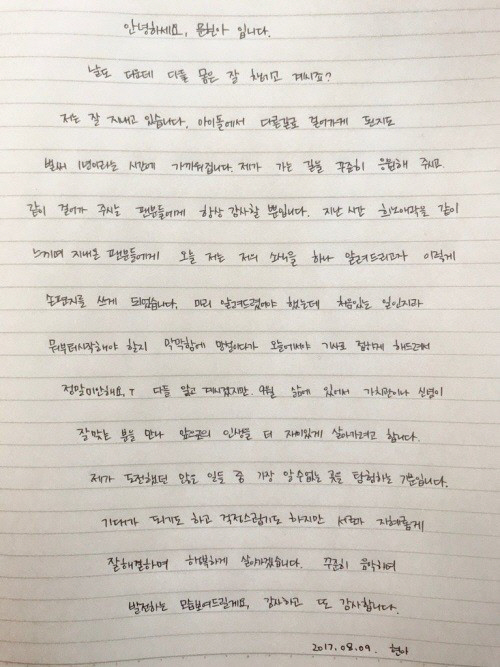 안녕하세요, 문현아 입니다.
날도 더운데 다들 몸은 잘 챙기고 계시죠?
저는 잘 지내고 있습니다. 아이돌에서 다른길로 걸어가게 된지도
벌써 1년이라는 시간에 가까워집니다. 제가 가는 길을 꾸준히 응원해 주시고
같이 걸어가 주시는 팬분들에게 항상 감사할 뿐입니다. 지난 시간 희노애락을 같이
느끼며 지내온 팬분들에게 오늘 저는 저의 소식을 하나 알려드리고자 이렇게
손편지를 쓰게 되었습니다. 미리 알려드렸어야 했는데 처음있는 일인지라
뭐부터시작해야 할지 막막함에 망설이다가 오늘에서야 기사로 접하게 해드려서
정말미안해요. 다들 알고 계시겠지만. 9월 삶에 있어서 가치관이나 신념이
잘맞는 분을 만나 앞으로의 인생을 더 재미있게 살아가려고 합니다.
제가 도전했던 많은 일들 중 가장 알수없는 곳을 탐험하는 기분입니다.
기대가 되기도 하고 걱정스럽기도 하지만 서로가 지혜롭게
잘해결하며 행복하게 살아가겠습니다. 꾸준히 음악하며
발전하는 모습보여드릴게요, 감사하고 또 감사합니다.
2017.08.09. 현아